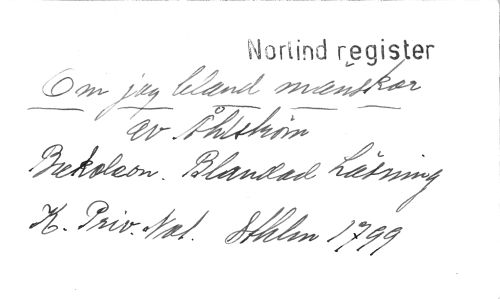 Norlind register
Om jag bland mänskor
av Åhlström
Blandad Läsning
K. Priv. Not. Sthlm 1799